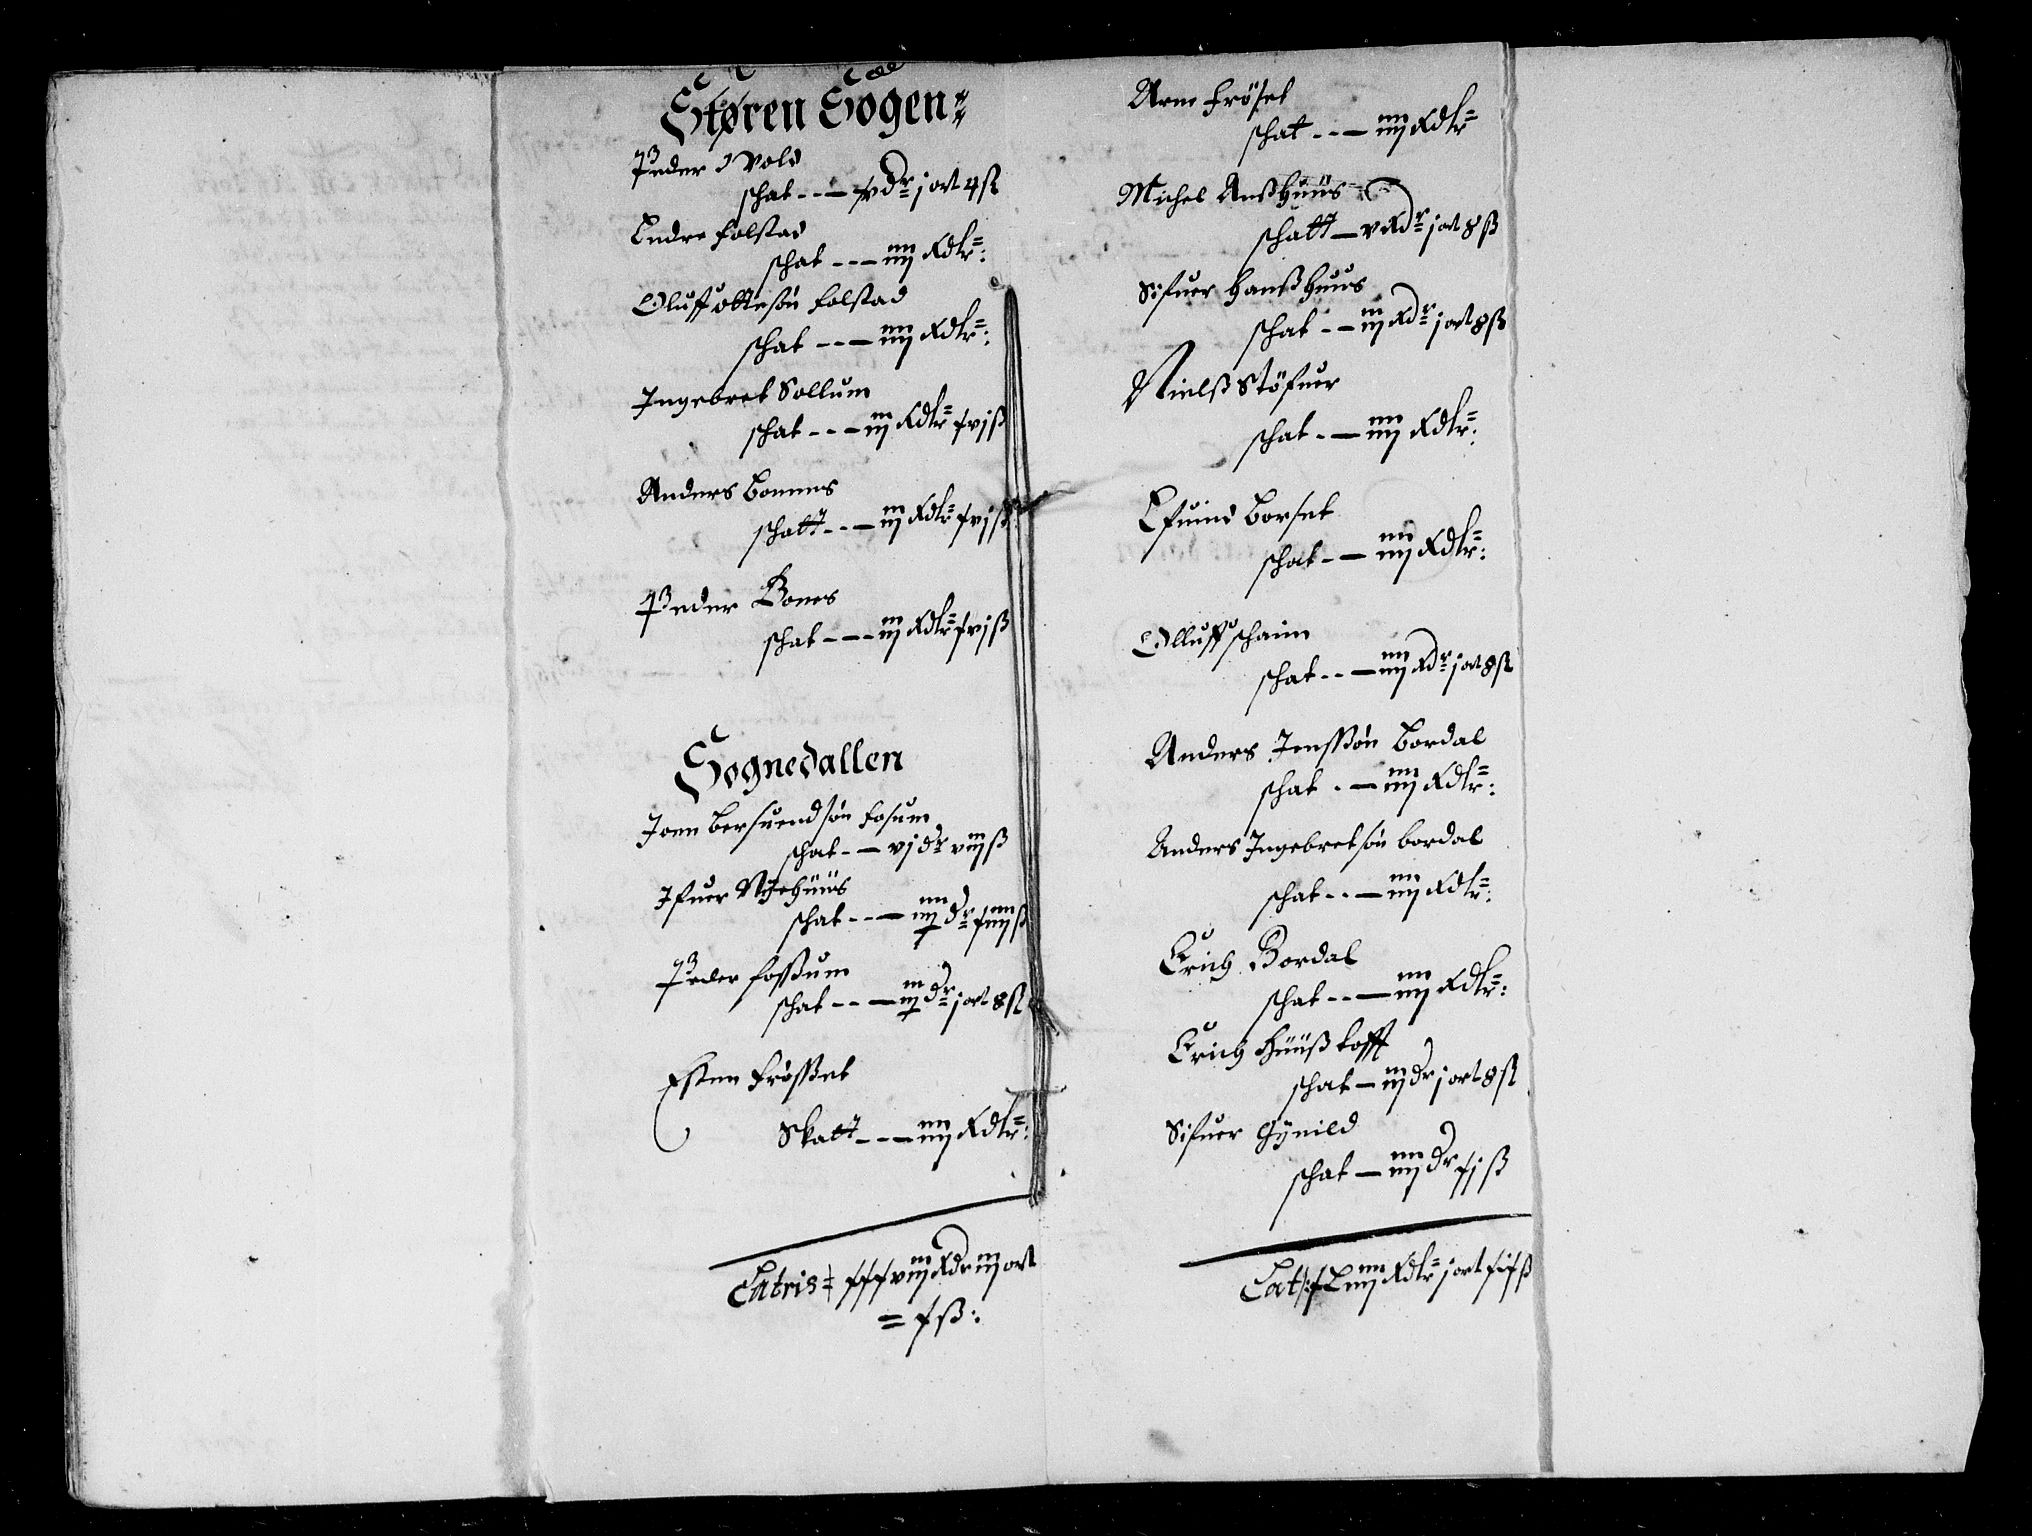 Støren Sogen
Peder J Vold
schat - - - v dr j ort 4 ß
Endre folstad
schat - - - iiij Rdlr:
Oluff ottesøn folstad
schat - - - iiij Rdlr:
Ingebret Sollum
schat - - - iij Rdlr xvj ß
Anders Bonnes
schatt - - - iij Rdlr xvj ß
Peder Bones
schat - - - iij Rdlr xvj ß
Sognedallen
Joen Bersuendsøn fosum
schat - - vj dr viij ß
Ifuer Nyehuus
schat - - - dr ß
Peder fossum
schat - - - dr j ort 8 ß
Esten frösset
Skatt - - - iiij Rdlr:
Latris xxxviij Rdr iij ort
= x ß:
Arne fröset
schat - - - iiij Rdlr
Michel Ansshuus
schatt - v Rdr j ort 8 ß
Sifuer Hansshuus
schat - - iij Rdr j ort 8 ß
Nielss Stöfuer
schat - - iiij Rdlr:
Efuind Borset
schat - - iiij Rdlr:
Olluff schaim
schat - - - iiij Rdr j ort 8 ß
Anders Jenssøn Bordal
schat - - iiij Rdlr:
Anders Ingebretsøn bordal
schat - - - iiij Rdlr:
Erich Bordal
schat - - - iiij Rdlr:
Erich Huusskofft
schat - iij dr j ort 8 ß
Sifuer Gynild
schat - iiij dr xij ß
Lat: Rdlr j ort ß